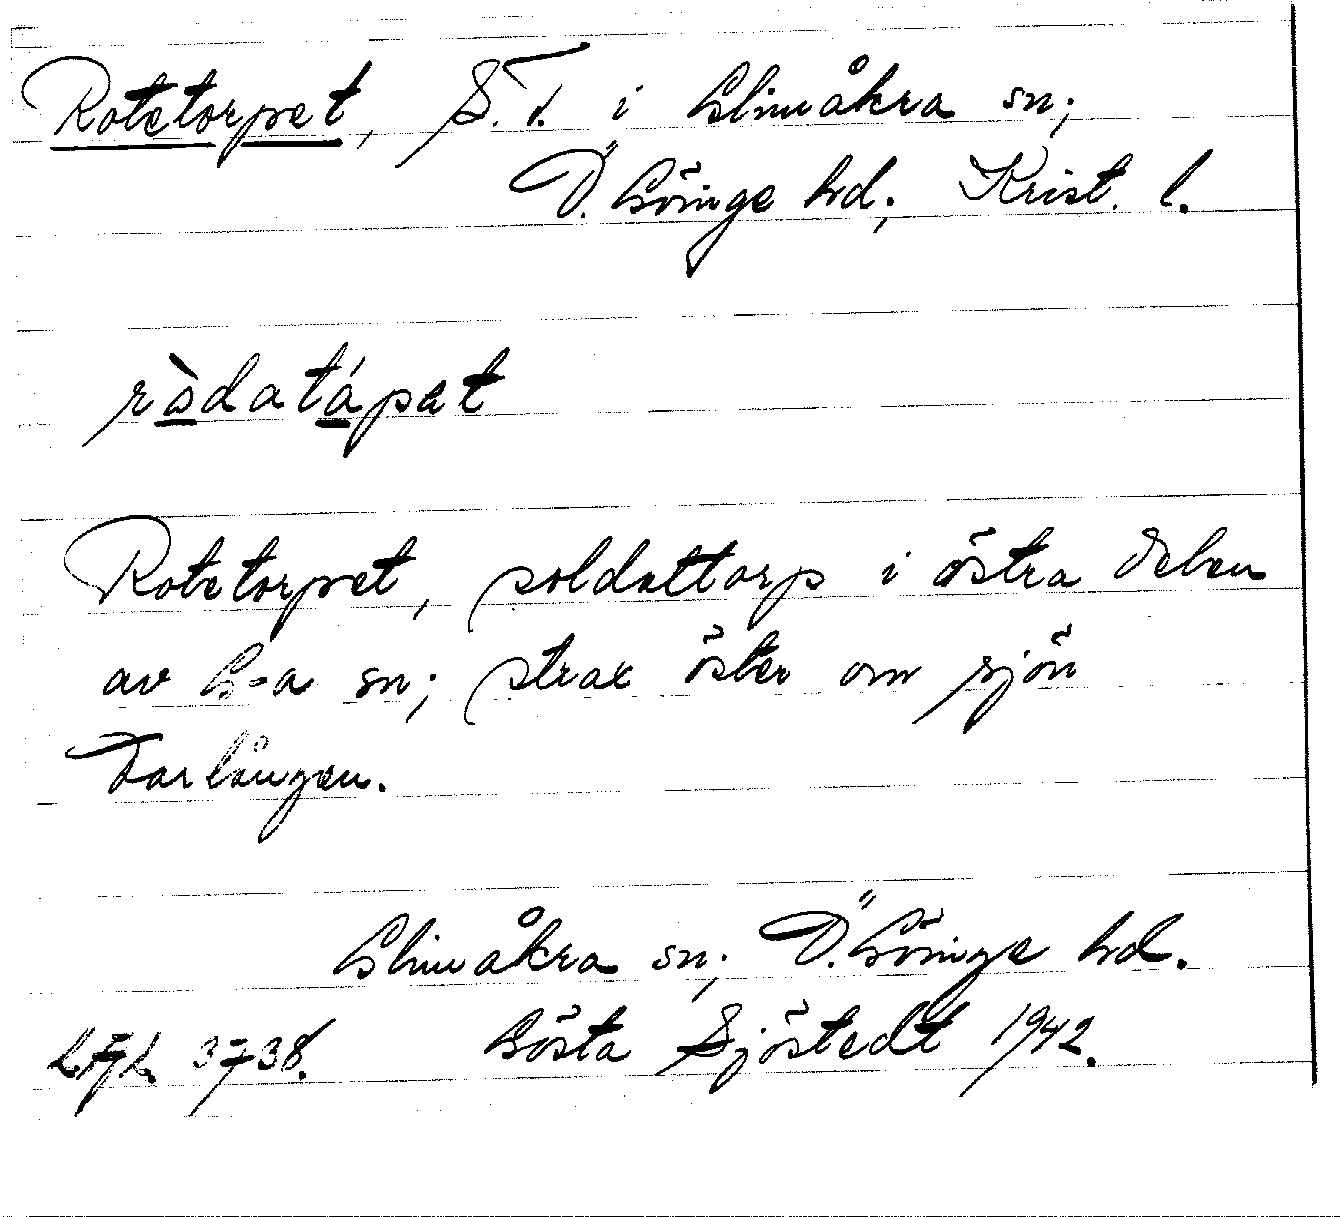 Rotetorpet, S.T. i Glimåkra sn;
Ö. Göinge hd; Krist. l.
ràdatápet
Rotetorpet, soldattorp i östra delen
av G-a sn; strax öster om sjön
Tarlången.
Glimåkra sn; Ö. Göinge hd.
Gösta Sjöstedt 1942.
3738.